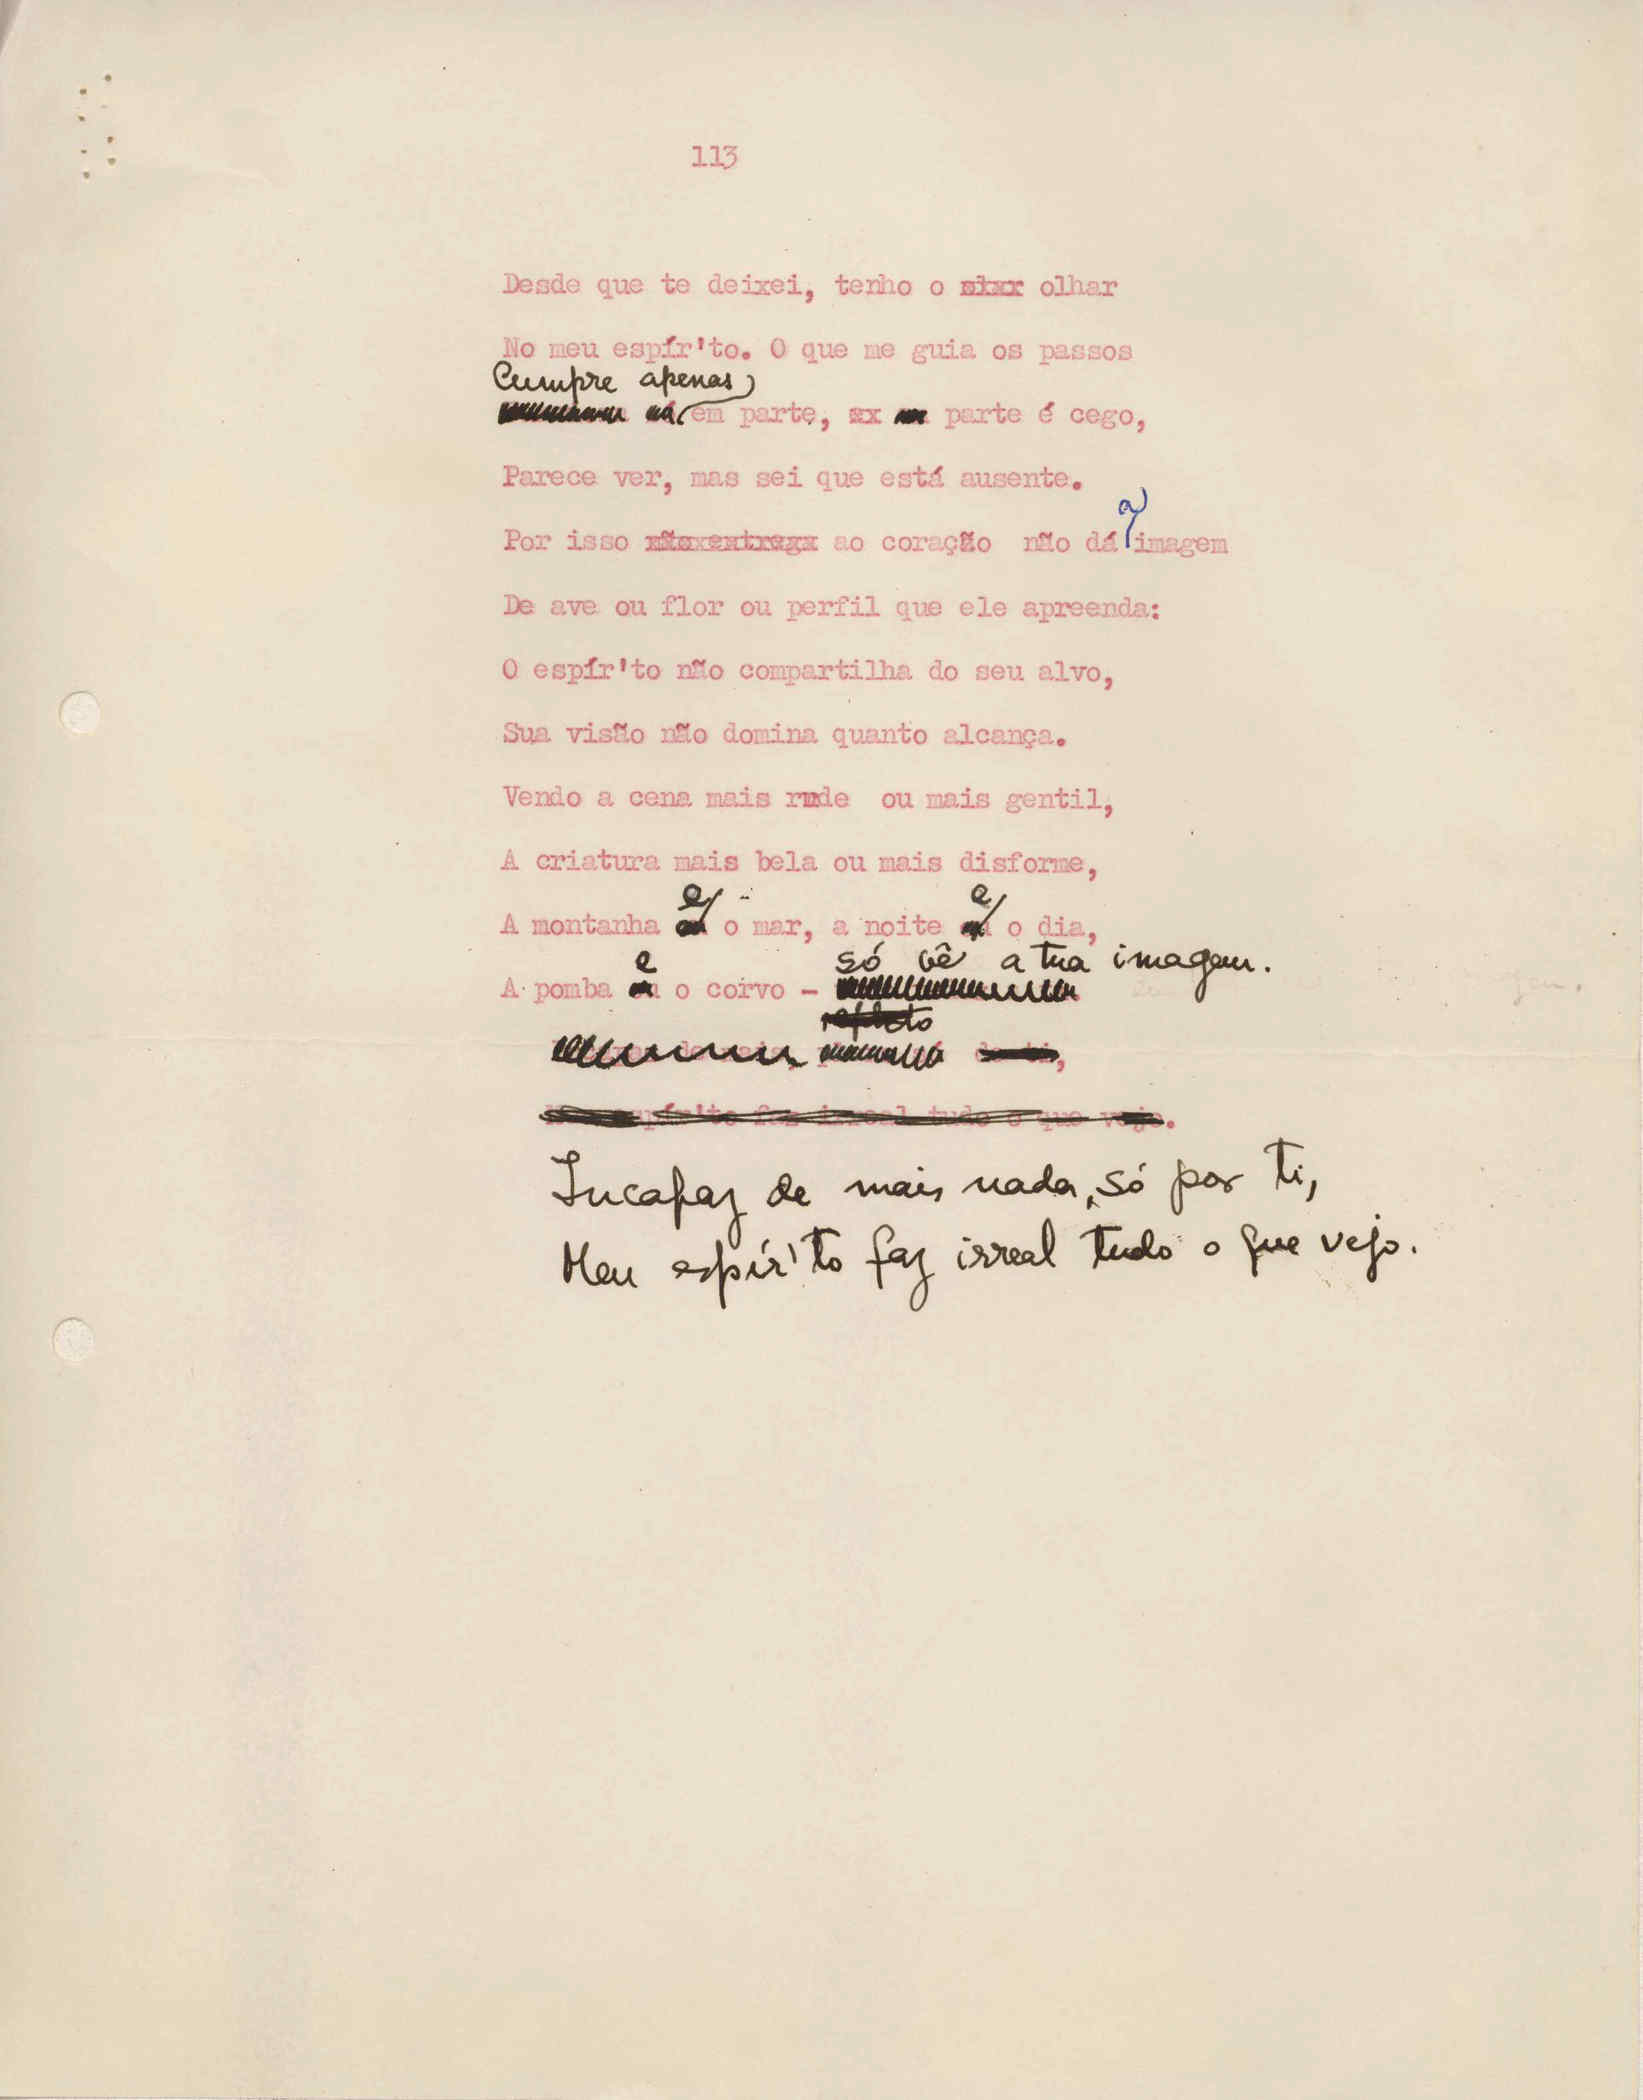 113
Desde que te deixei, tenho o olhar
No meu espír'to. O que me guia os passos
Cumpre apenas
em parte, parte é cego,
Parece ver, mas sei que está ausente.
a
Por isso ao coração não dá imagem
De ave ou flor ou perfil que ele apreenda:
O espír'to não compartilha do seu alvo,
Sua visão não domina quanto alcança.
Vendo a cena mais rude ou mais gentil,
A criatura mais bela ou mais disforme,
e e
A montanha o mar, a noite o dia,
e só vê a tua imagem.
A pomba o corvo -
Meu espír'to faz irreal tudo o que vejo.
Incapaz de mais nada, só por ti,
Meu espír'to faz irreal tudo o que vejo.